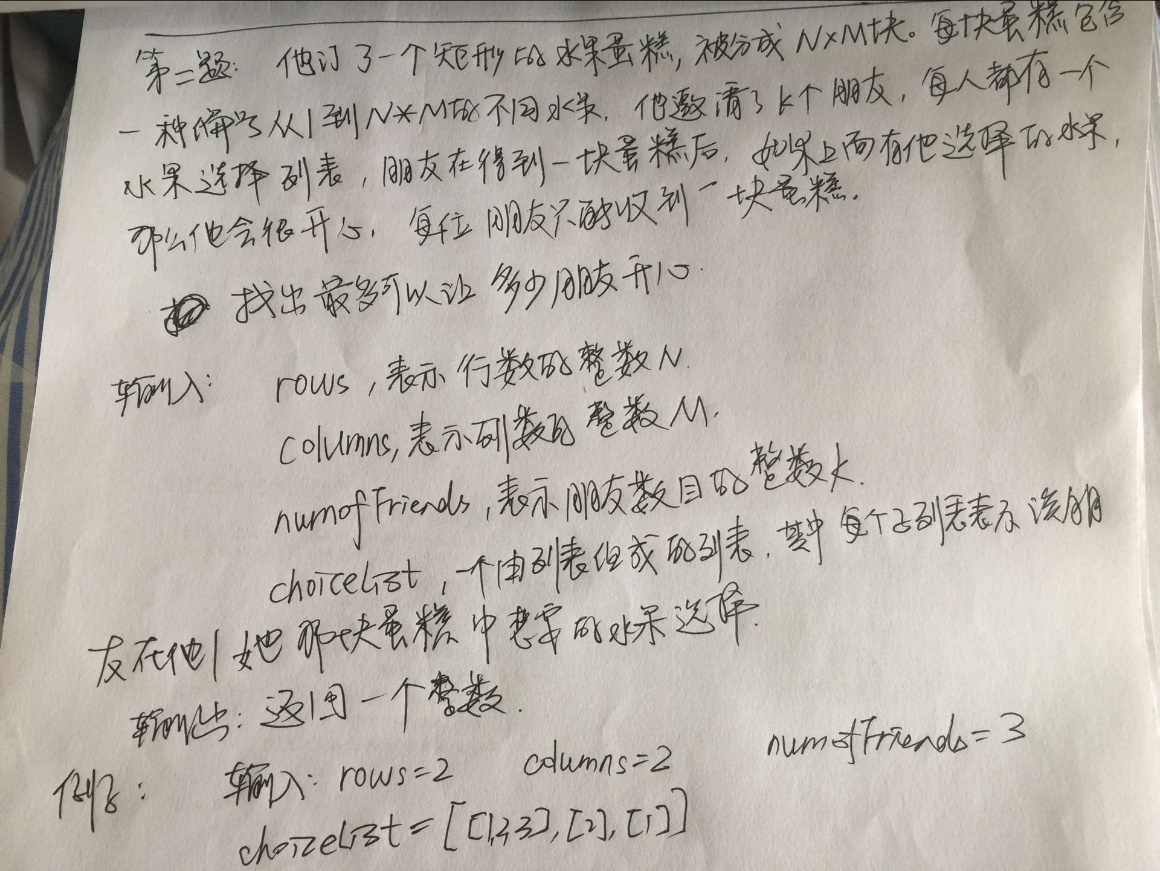 第二题: 他订了一个矩形的水果蛋糕, 被分成 N×M块。每块蛋糕包含
一种编号从1到N*M的不同水果. 他邀请了k个朋友, 每人都有一个
水果选择列表, 朋友在得到一块蛋糕后, 如果上面有他选择的水果,
那么他会很开心. 每位朋友只能收到一块蛋糕.
找出最多可以让多少朋友开心.
输入: rows, 表示行数的整数N.
columns, 表示列数的整数M.
numofFriends, 表示朋友数目的整数k.
choiceList, 一个由列表组成的列表, 其中每个子列表表示该朋
友在他/她那块蛋糕中想要的水果选择.
输出: 返回一个整数.
例: 输入: rows=2 columns=2 numofFriends=3
choiceList=[[1,2,3],[2],[1]]